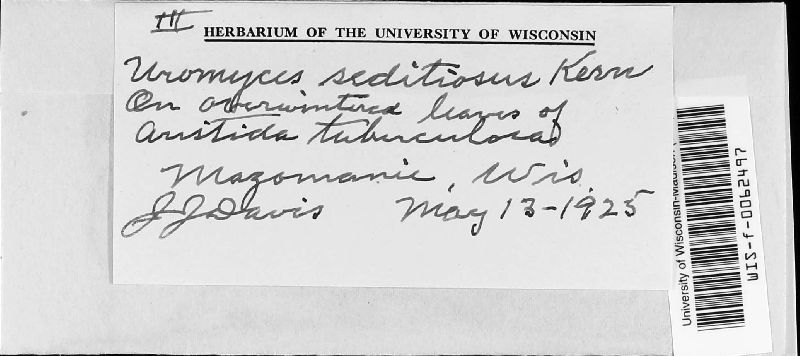 III
HERBARIUM OF THE UNIVERSITY OF WISCONSIN
Uromyces seditiosus Kern
On overwintered leaves of
Aristida tuberculosa
Mazomanie, Wis.
J J Davis May 13-1925
University of Wisconsin-Madison
WIS-f-0062497